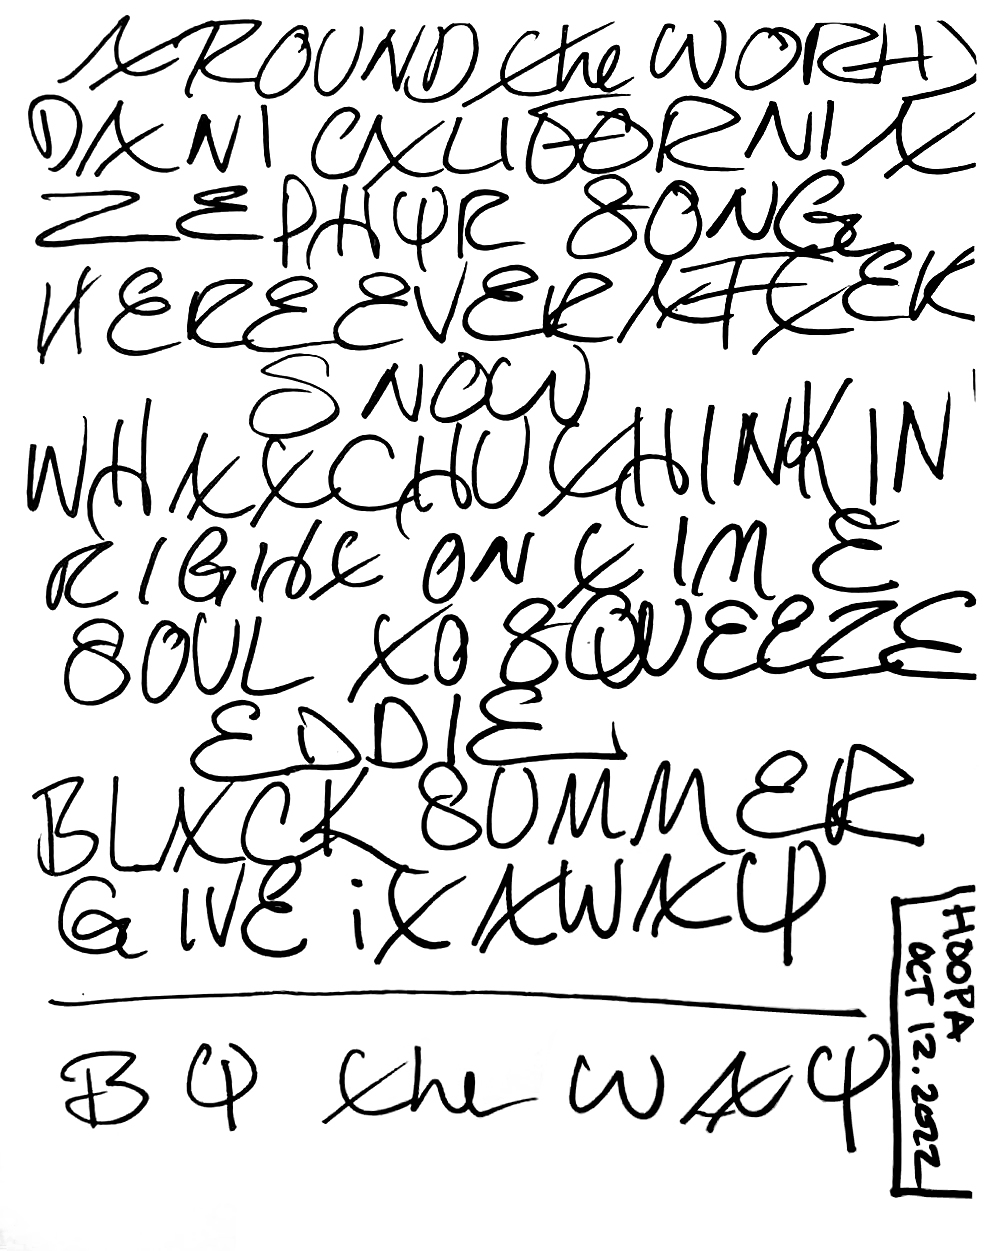 AROUND the WORLD
DANI CALIFORNIA
ZEPHYR SONG
HEREEVERAFTER
SNOW
WHATCHU THINKIN
RIGHT ON TIME
SOUL TO SQUEEZE
EDDIE
BLACK SUMMER
GIVE iT AWAY
BY the WAY
HOOPA
OCT 12.2022